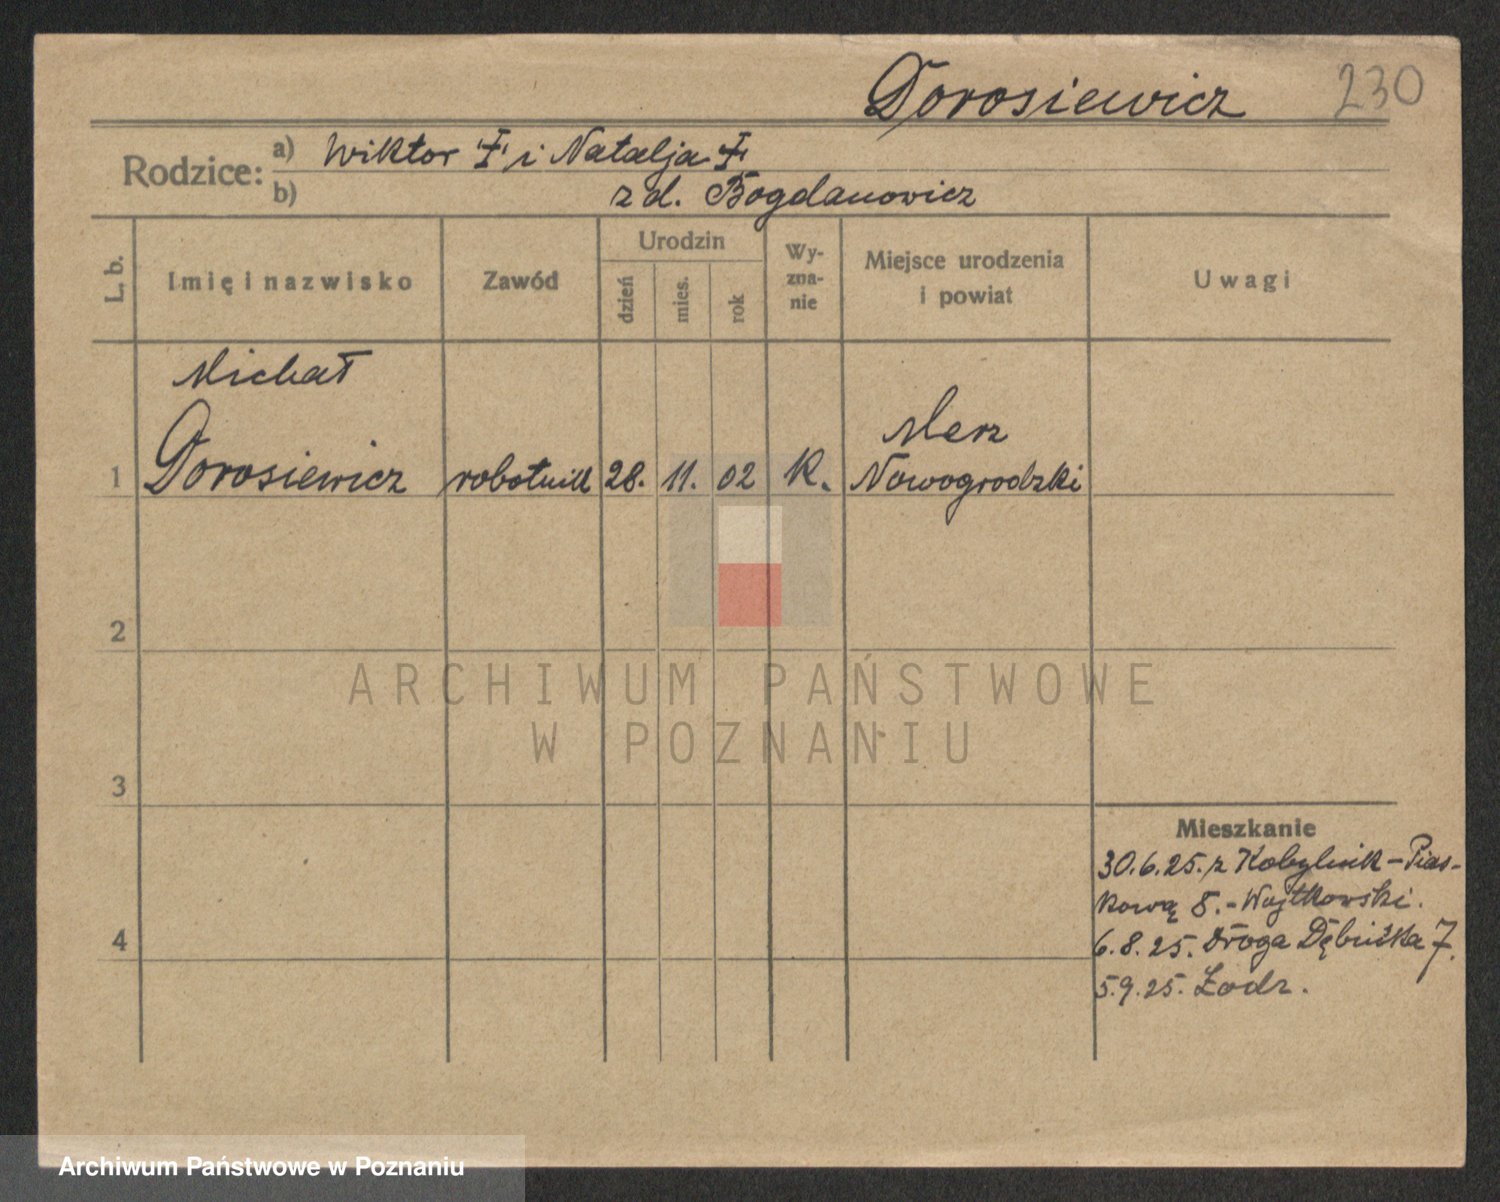 Dorosiewicz 230
Rodzice: a) Wiktor † i Natalja †
b) z d. Bogdanowicz
L. b. Imię i nazwisko Zawód Urodzin Wy-zna-nie Miejsce urodzenia i powiat Uwagi
dzień mies. rok
Michał
1 Dorosiewicz robotnik 28. 11. 02 K. Merz Nowogrodzki
2
3
4
Mieszkanie
30.6.25. z Kobylnik - Pias-
kową 8. - Wojtkowski.
6.8.25. Droga Dębińska 7.
5.9.25. Łodz.
ARCHIWUM PAŃSTWOWE
W POZNANIU
Archiwum Państwowe w Poznaniu